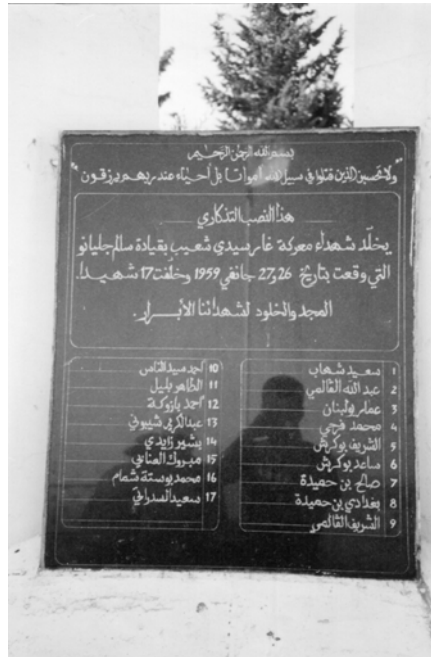 بسم الله الرحمن الرحيم
"ولا تحسبن الذين قتلوا في سبيل الله أمواتا بل أحياء عند ربهم يرزقون"
هذا النصب التذكاري
يخلد شهداء معركة غار سيدي شعيب بقيادة سالم جليانو
التي وقعت بتاريخ 26 و27 جانفي 1959 وخلفت 17 شهيدا.
المجد والخلود لشهدائنا الأبرار.
1 سعيد شهاب
2 عبد الله القالمي
3 عمار بولبنان
4 محمد فرحي
5 الشريف بوكرش
6 ساعد بوكرش
7 صالح بن حميدة
8 بغدادي بن حميدة
9 الشريف القالمي
10 أحمد سيد الناس
11 الطاهر بلميل
12 أحمد بازوكة
13 عبد الكريم شيبوني
14 بشير زايدي
15 مبروك العنابي
16 محمد بوستة شمام
17 سعيد السدراتي